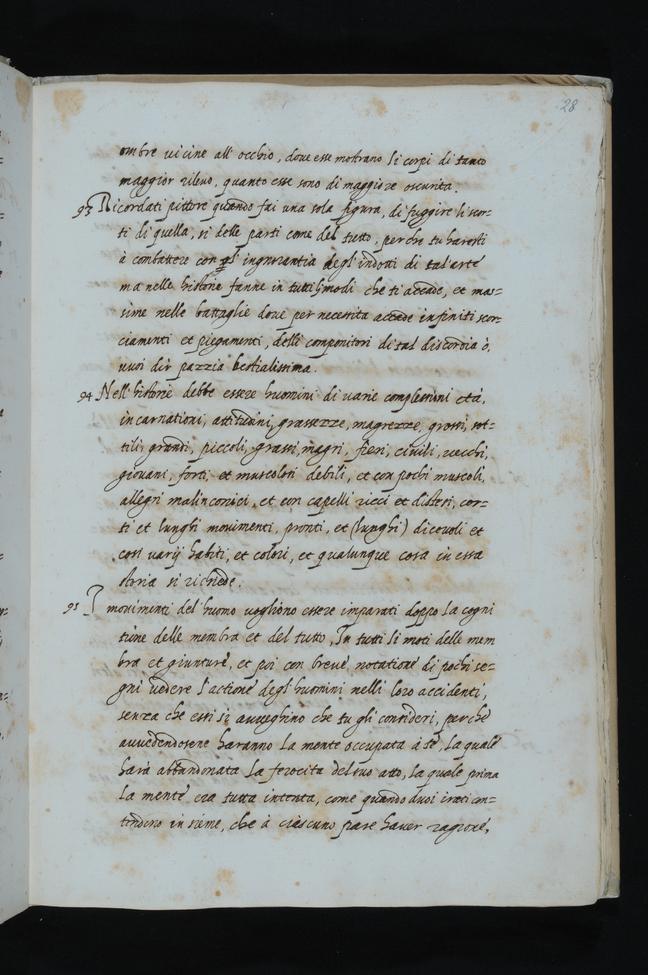 28
ombre vicine all' occhio, dove esse mostrano li corpi di tanto
maggior rilevo, quanto esse sono di maggiore oscurita.
93 Ricordati pittore quando fai una sola figura, di fuggire li scor-
ti di quella, si delle parti come del tutto, perche tu haresti
à combattere con l'ingnorantia degl'indotti di tal'arte
ma nelle historie fanne in tutti li modi che ti accade, et mas=
sime nelle battaglie dove per necessita accade infiniti scor=
ciamenti et piegamenti, delli componitori di tal discordia ò,
vuoi dir pazzia bestialissima.
94 Nell'historie debbe essere huomini di varie complessioni età,
incarnationi, attitudini, grassezze, magrezze, grossi, sot=
tili, grandi, piccoli, grassi, magri, fieri, civili, vecchi,
giovani, forti, et muscolosi debili, et con pochi muscoli,
allegri malinconici, et con capelli ricci et distesi, cor=
ti et lunghi movimenti, pronti, et (lunghi) et
cosi varij habiti, et colori, et qualunque cosa in essa
storia si richiede.
95 I movimenti del'huomo vogliono essere imparati doppo la cogni
tione delle membra et del tutto, In tutti li moti delle mem
bra et giunture, et poi con breve notatione di pochi se=
gni vedere l'actione degl'huomini nelli loro accidenti,
senza che essi si avveghino che tu gli consideri, perche
avvedendosene haranno la mente occupata à te, la quale
harà abbandonata la ferocita del suo atto, la quale prima
la mente era tutta intenta, come quando duoi irati con=
tendono insieme, che à ciascuno pare haver ragione,